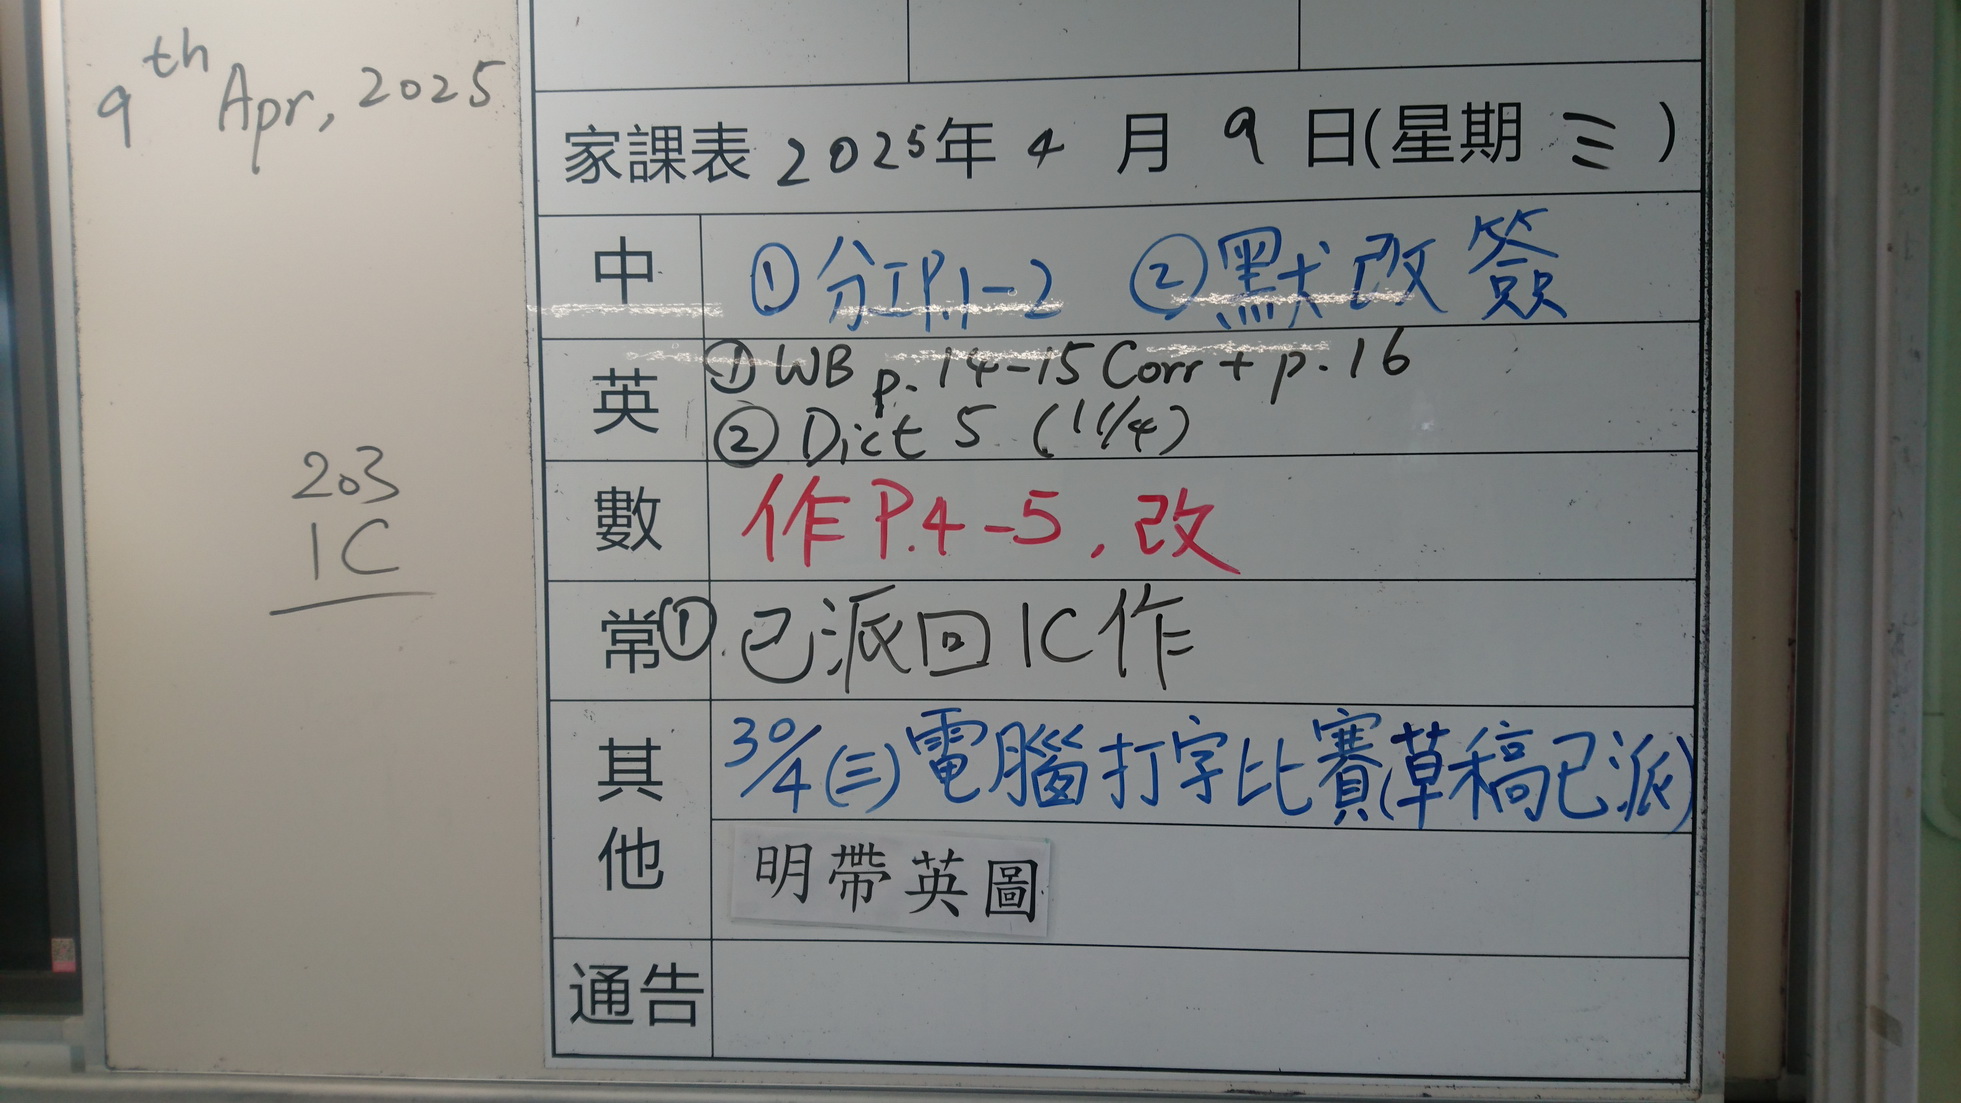 9th Apr, 2025
203
1C
家課表 2025年 4 月 9 日(星期 三 )
中 ①分工P.1-2 ②默改簽
英 ①WB p.14-15 Corr + p.16
②Dict 5 (11/4)
數 作P.4-5,改
常 ①已派回1C作
其他 30/4(三)電腦打字比賽(草稿已派)
明帶英圖
通告